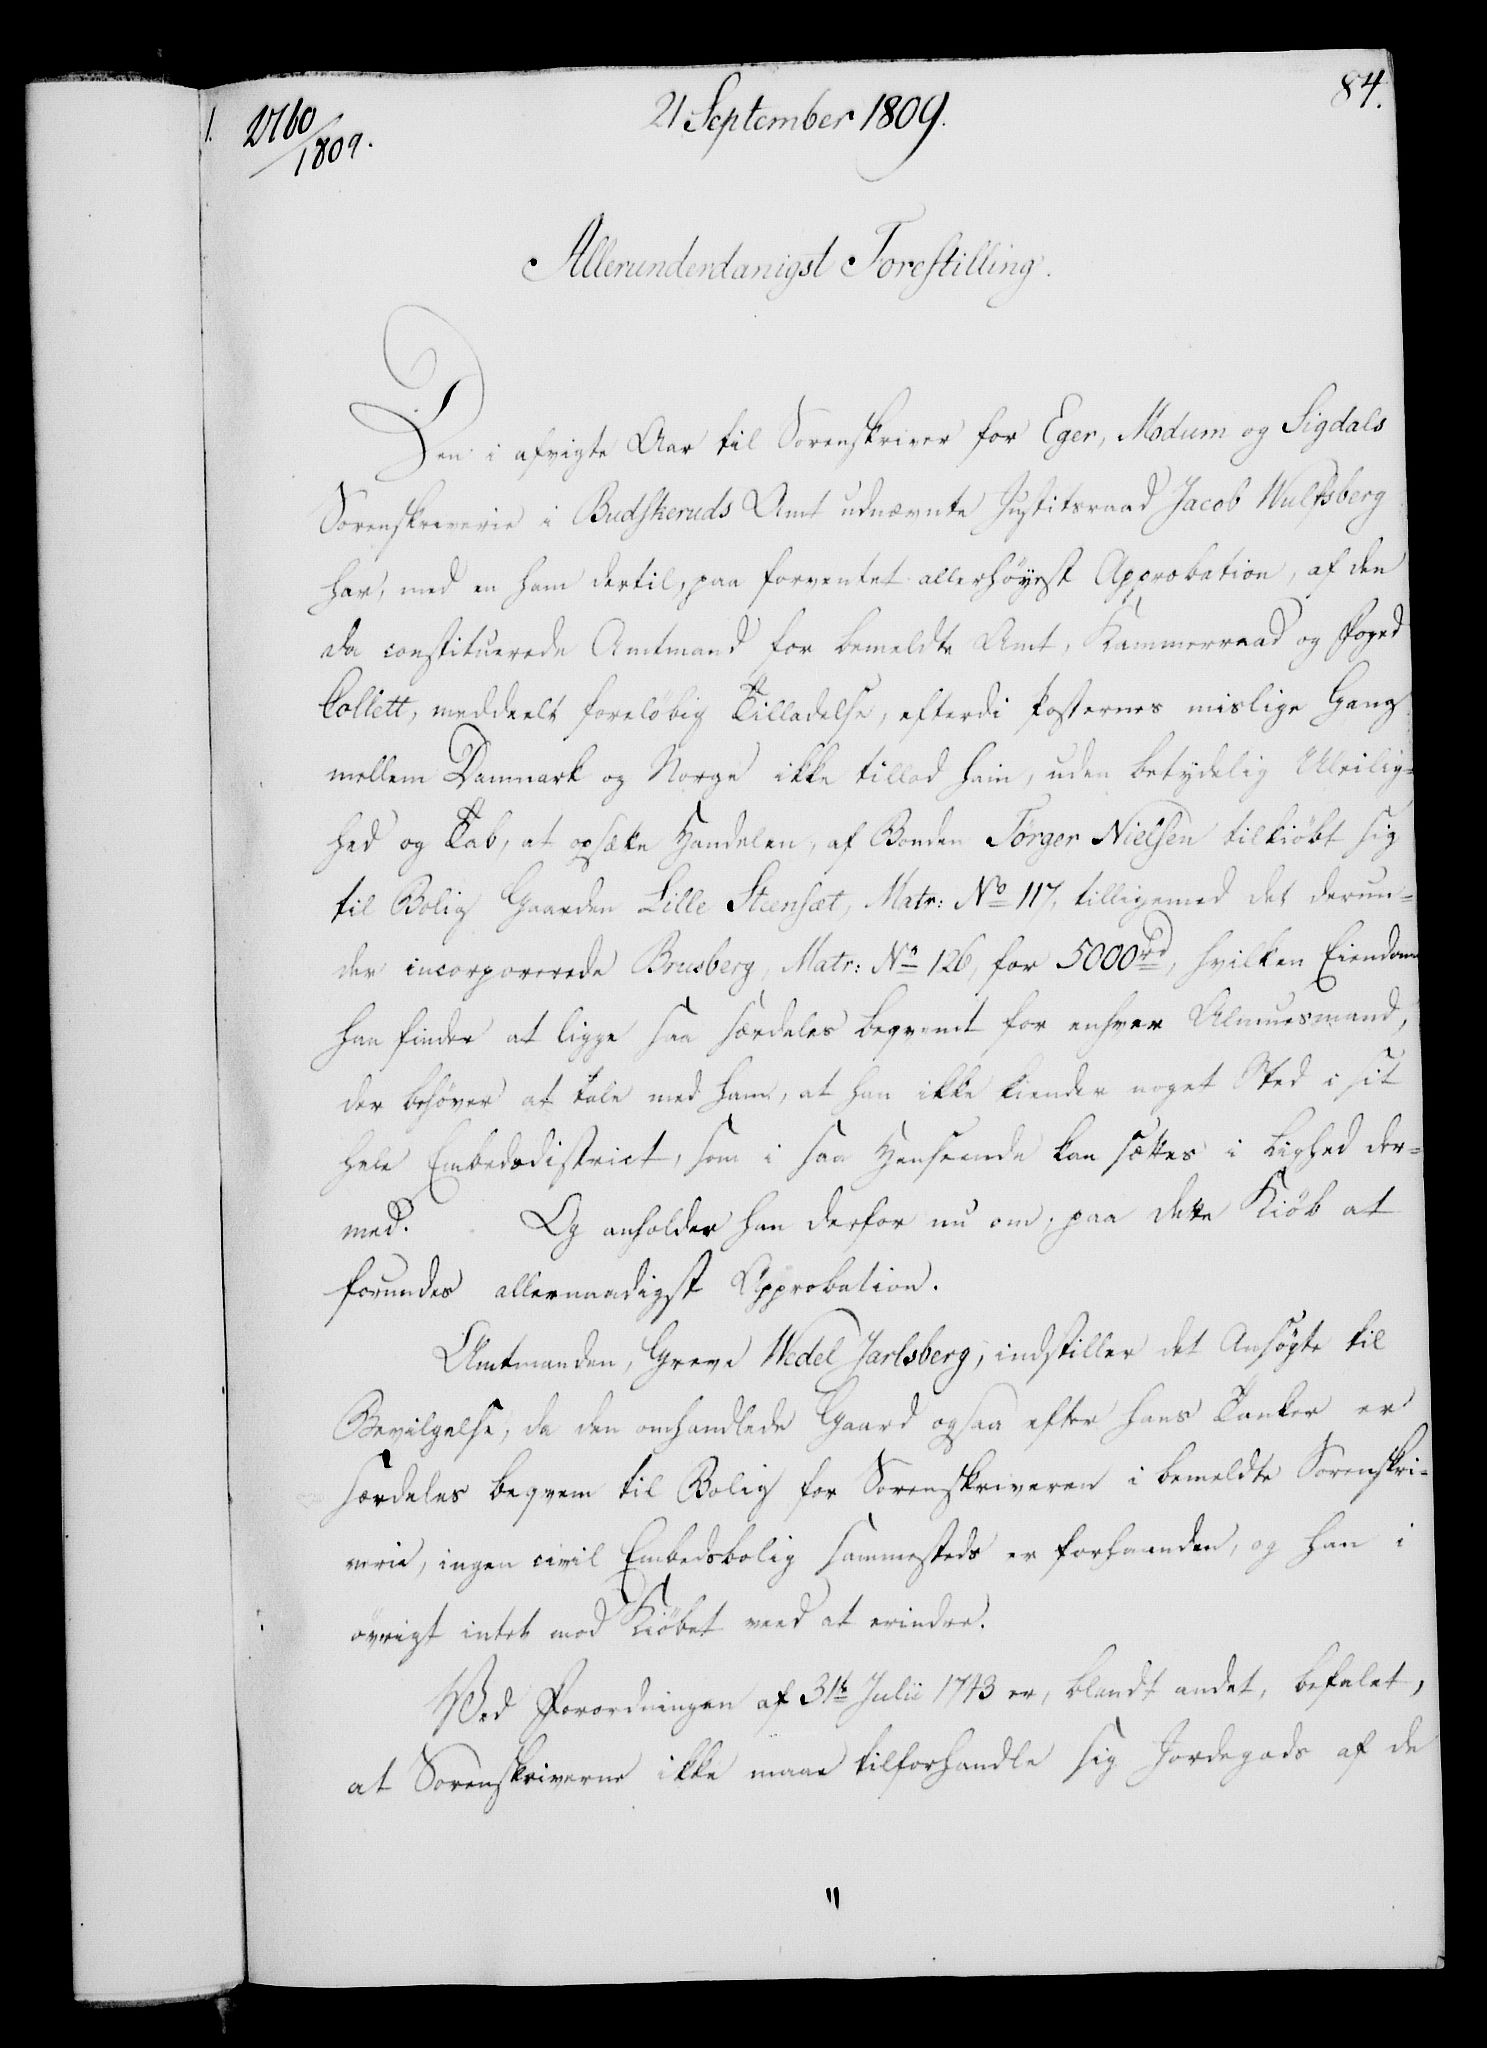 1.
2760
1809.
21 September 1809.
84.
Allerunderdanigst Forestilling.
Den i afvigte Aar til Sorenskriver for Eger, Modum og Sigdals
Sorenskriverie i Budskeruds Amt udnævnte Justitsraad Jacob Wulfsberg
har, med en ham dertil, paa forventet allerhøyest Approbation, af den
da constituerede Amtmand for bemeldte Amt, Kammerraad og Foged
Collett, meddeelt foreløbig Tilladelse, efterdi Posternes mislige Gang
mellem Danmark og Norge ikke tillod ham, uden betydelig Uleilig-
hed og Tab, at opsætte Handelen, af Bonden Törger Nielsen tilkiøbt sig
til Bolig Gaarden Lille Steensæt, Matr: No 117, tilligemed det derun-
der incorporerede Brusberg, Matr: No 126, for 5000rd, hvilken Eiendom
han finder at ligge saa særdeles beqvemt for enhver Almuesmand,
der behøver at tale med ham, at han ikke kiender noget Sted i sit
hele Embedsdistrict, som i saa Henseende kan sættes i Lighed der-
med. Og anholder han derfor nu om, paa dette Kiöb at
forundes allernaadigst Approbation.
Amtmanden, Greve Wedel Jarlsberg, indstiller det Ansøgte til
Bevilgelse, da den omhandlede Gaard ogsaa efter hans Tanker er
særdeles beqvem til Bolig for Sorenskriveren i bemeldte Sorenskri-
verie, ingen civil Embedsbolig sammesteds er forhaanden, og han i
øvrigt intet mod Kiöbet veed at erindre.
Ved Forordningen af 31te Julii 1743 er, blandt andet, befalet,
at Sorenskriverne ikke maae tilforhandle sig Jordegods af de